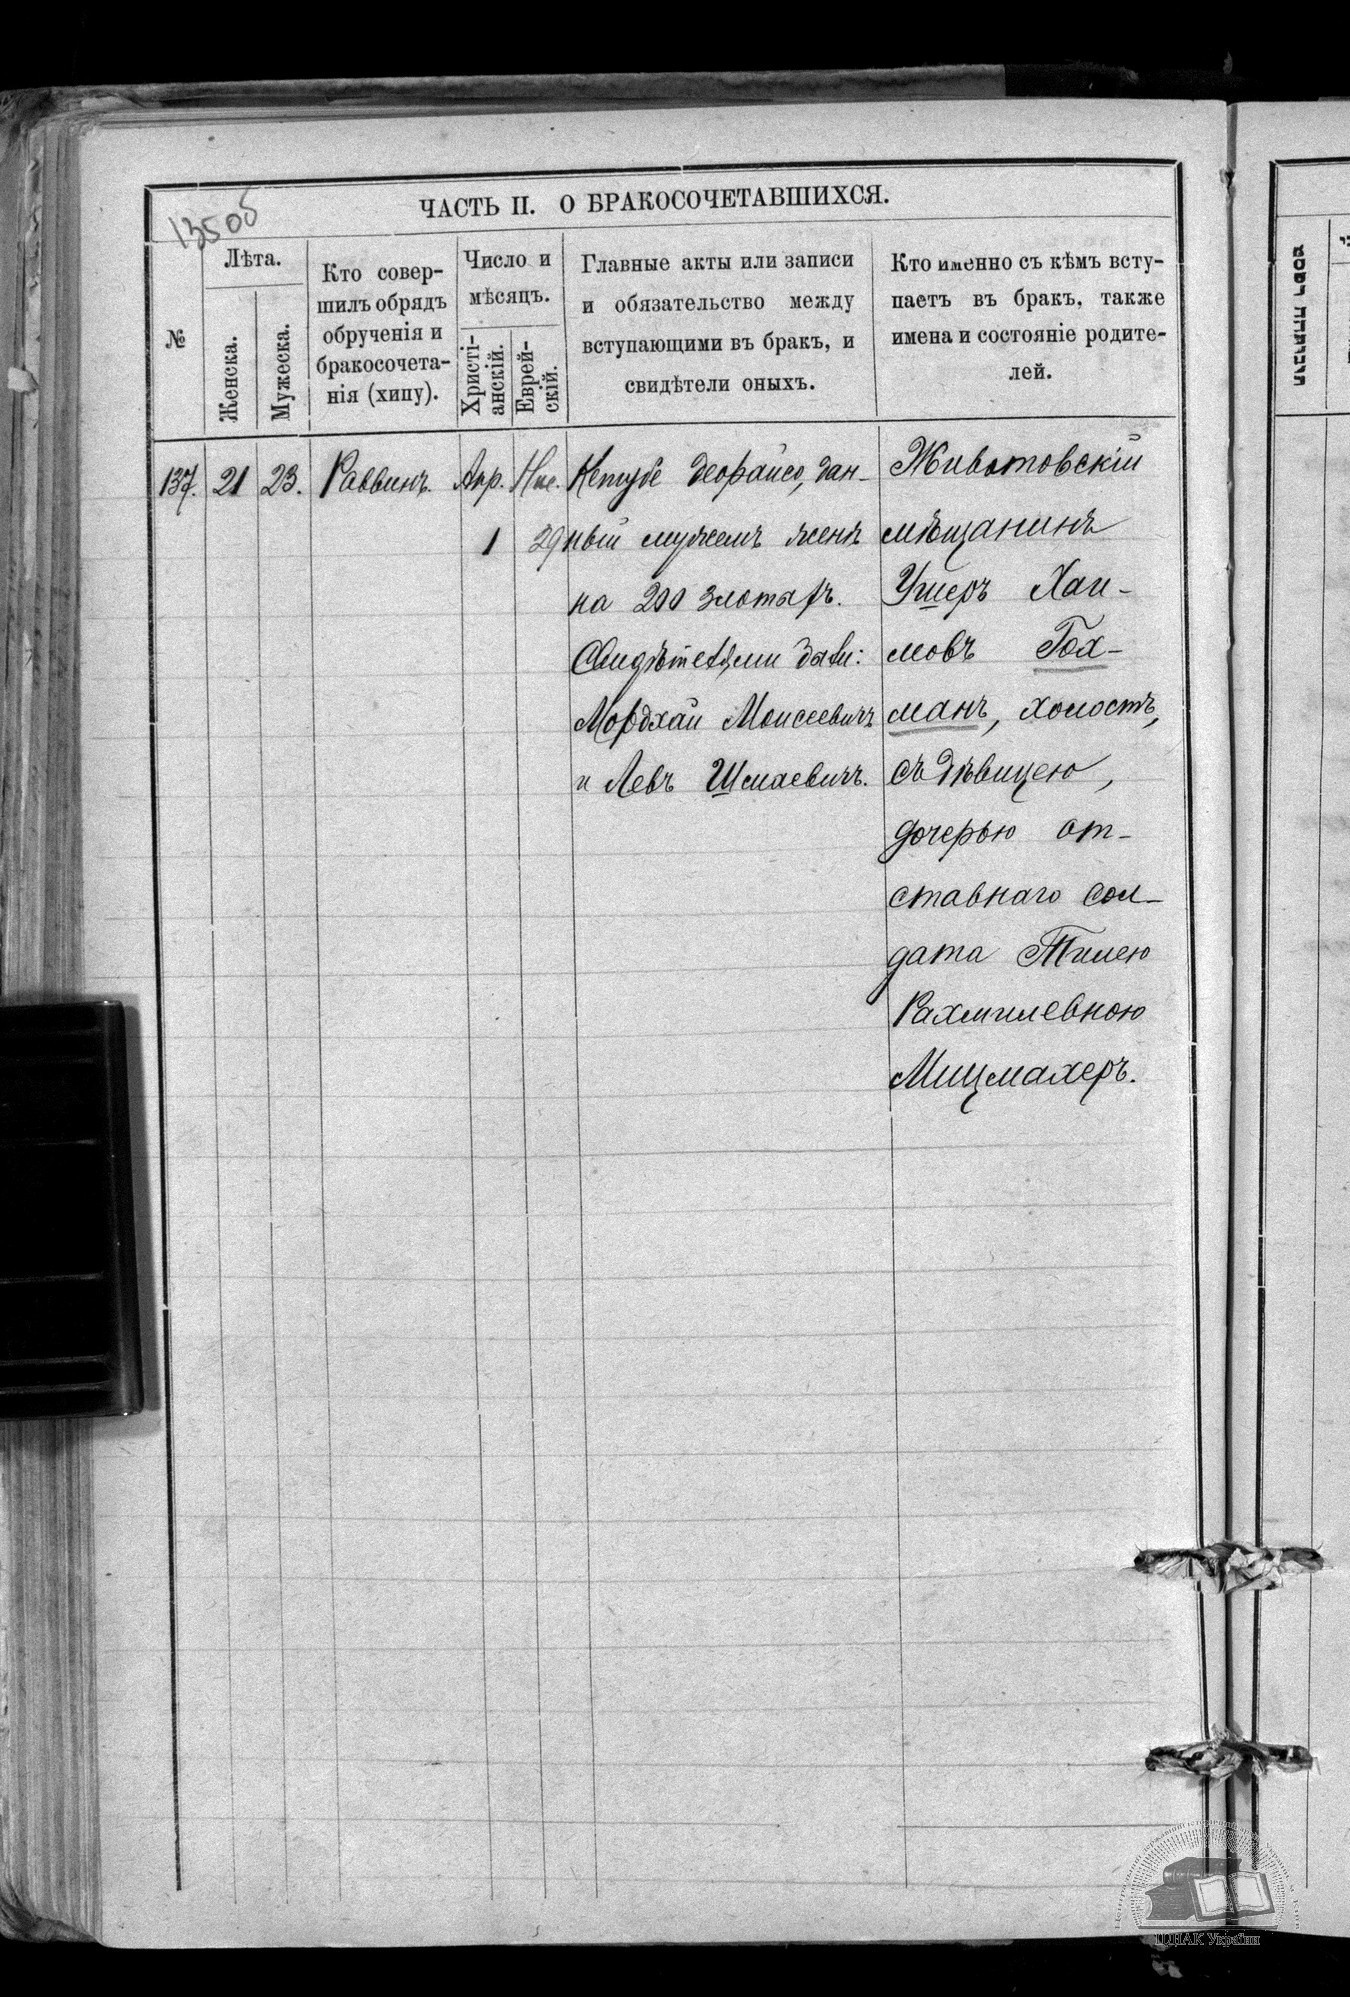 135об
ЧАСТЬ II. О БРАКОСОЧЕТАВШИХСЯ.
№
Лѣта.
Женска.
Мужеска.
Кто совер-
шилъ обрядъ
обрученія и
бракосочета-
нія (хипу).
Число и
мѣсяцъ.
Христі-
анскій.
Еврей-
скій.
Главные акты или записи
и обязательство между
вступающими въ бракъ, и
свидѣтели оныхъ.
Кто именно съ кѣмъ всту-
паетъ въ бракъ, также
имена и состояніе родите-
лей.
137. 21 23. Раввинъ. Апр. Нис.
1 29
Кетубе деорайсо, дан-
ный мужемъ женѣ
на 200 злотыхъ.
Свидѣтелями были:
Мордхай Моисеевичъ
и Левъ Шмаевичъ.
Животовскій
мѣщанинъ
Ушеръ Хаи-
мовъ Гох-
манъ, холостъ,
съ дѣвицею,
дочерью от-
ставнаго сол-
дата Тилею
Рахмилевною
Мицмахеръ.
ЦДІАК України